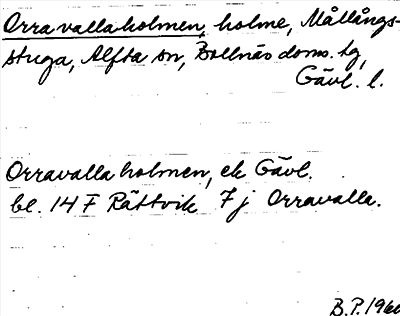 Orravallaholmen, holme, Mållångs-
stuga, Alfta sn, Bollnäs doms. tg,
Gävl. l.
Orravallaholmen, ek Gävl.
bl. 14 F Rättvik 7j Orravalla.
B.P. 1960